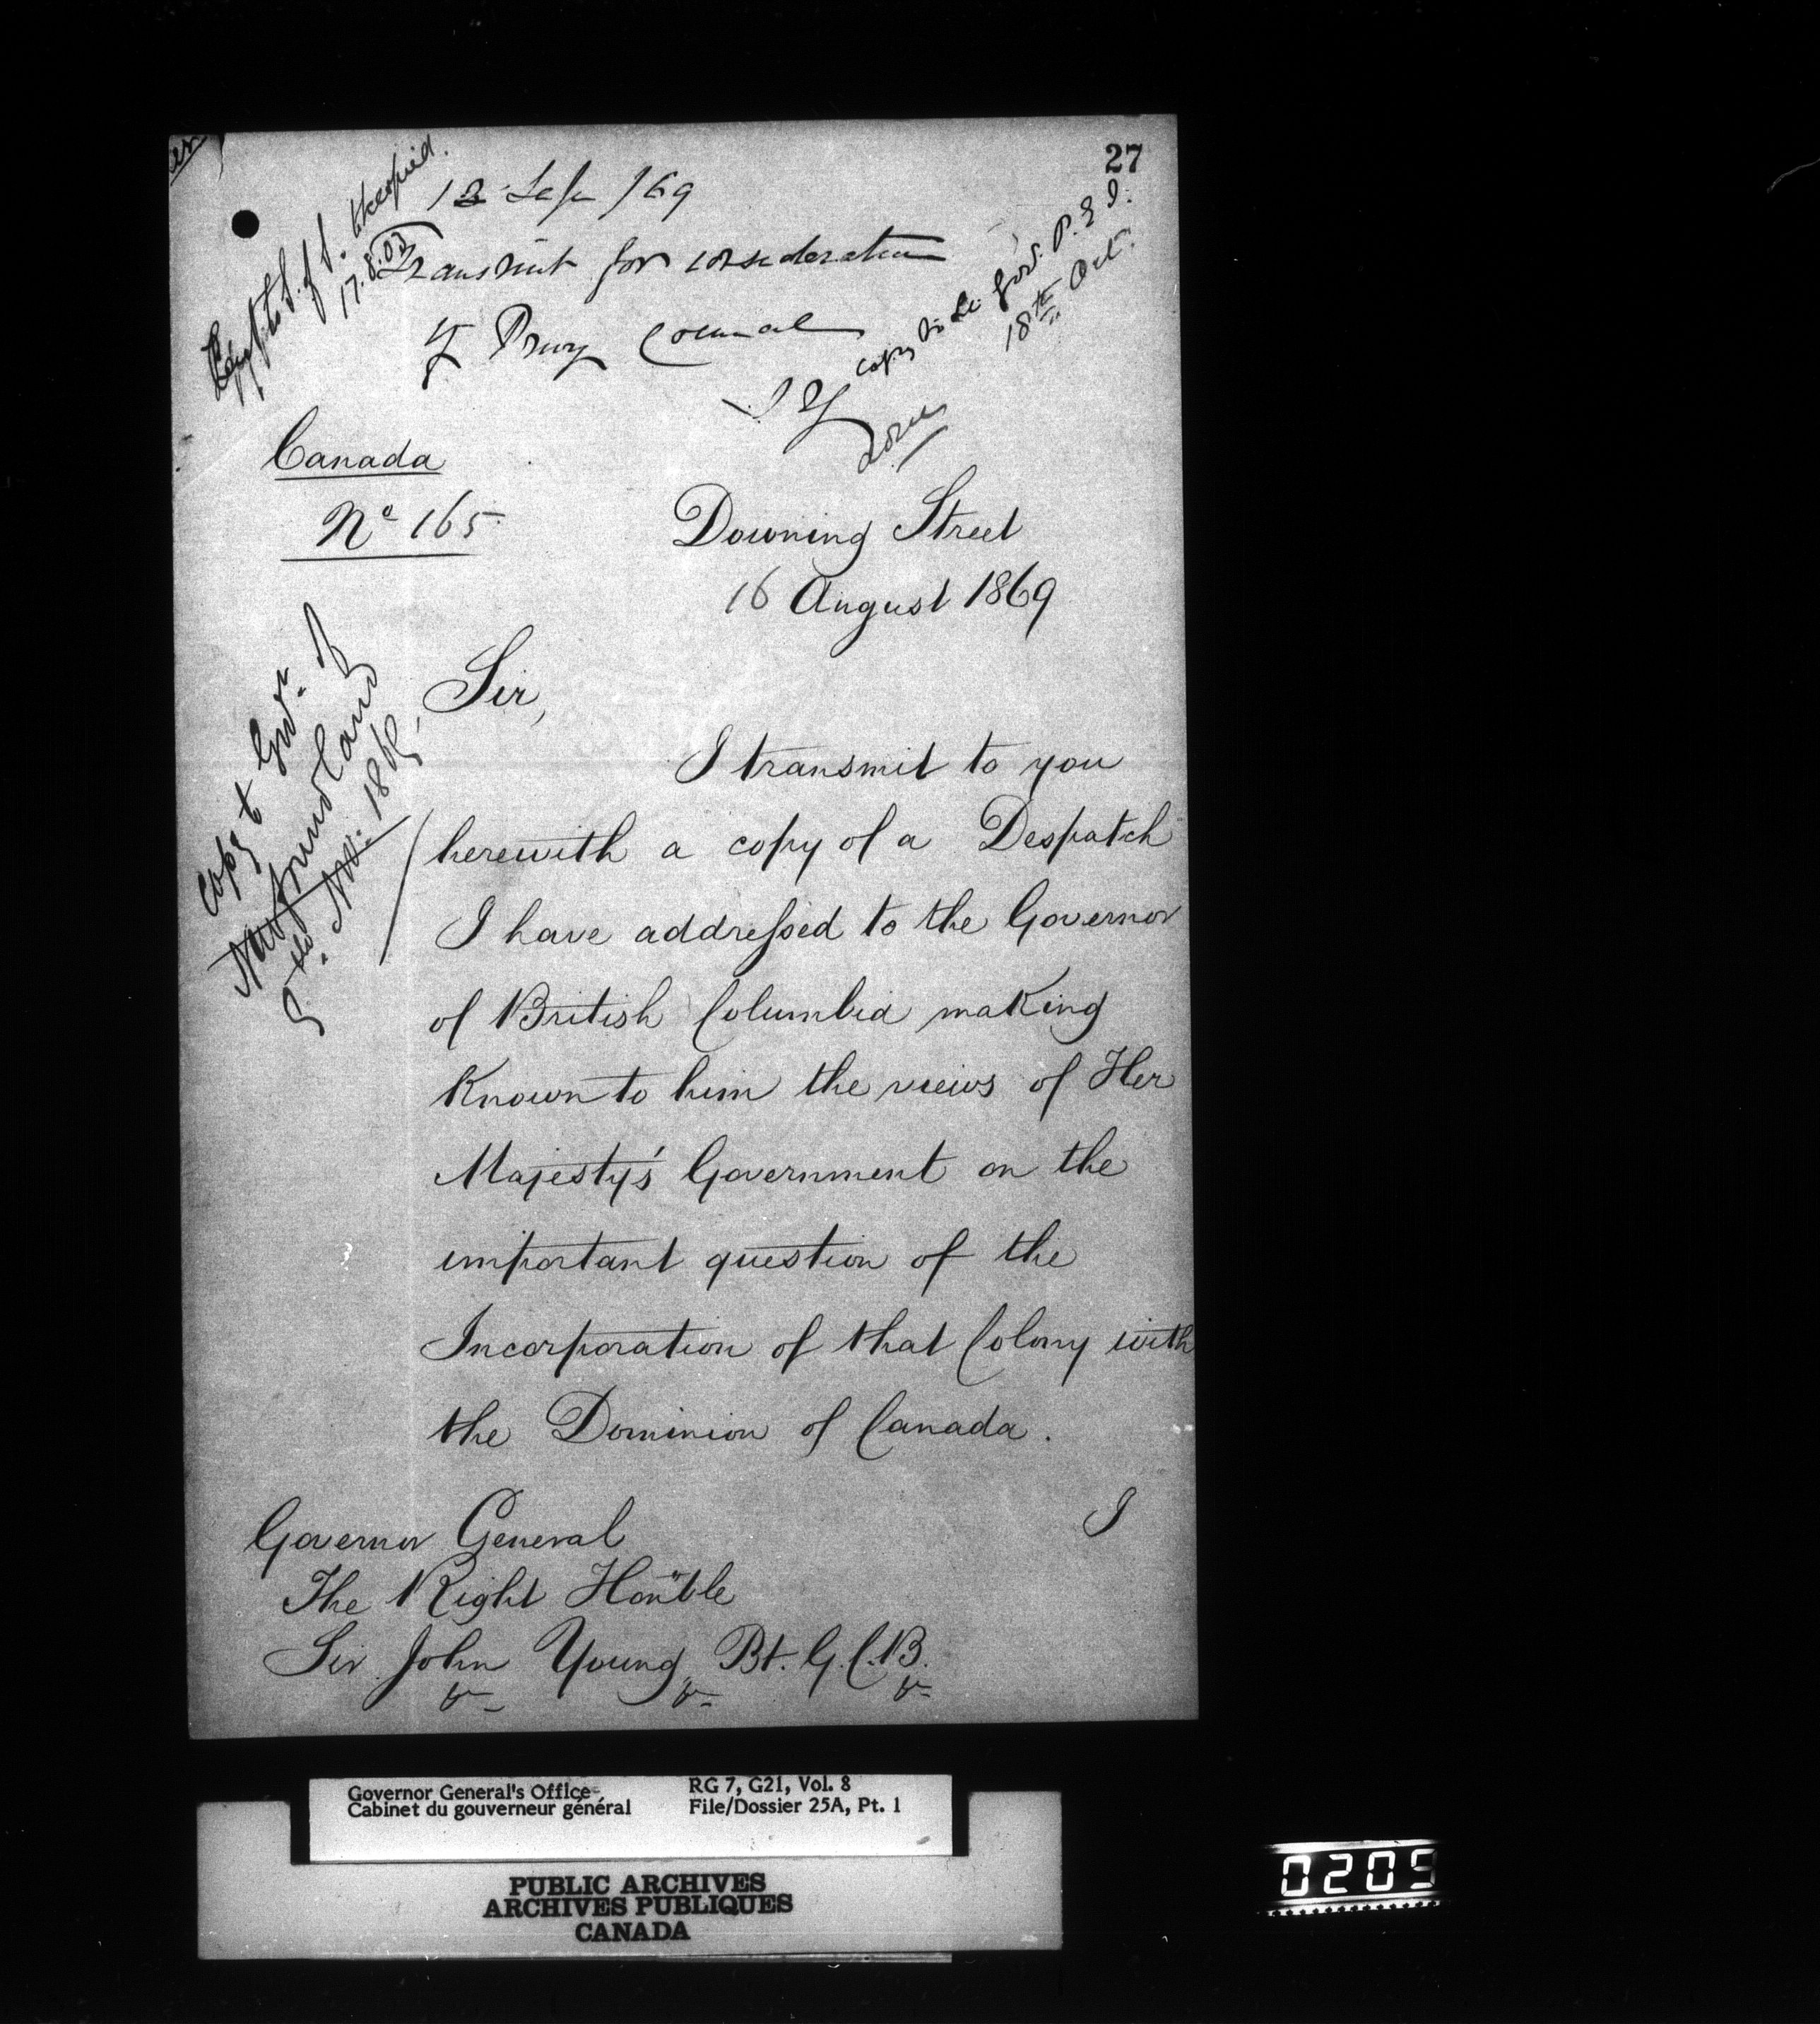 27
Transmit for consideration
of Privy Council
J Y
Copy to Lt. Gov. P. E I.
18th Oct.
17.8.03
Canada
No 165.
Downing Street
16 August 1869
Copy to Govr. of
Newfoundland
Nov. 1869
Sir,
I transmit to you
herewith a copy of a Despatch
I have addressed to the Governor
of British Columbia making
Known to him the views of Her
Majesty's Government on the
important question of the
Incorporation of that Colony with
the Dominion of Canada.
I
Governor General
The Right Honble
Sir John Young Bt. G.C.B.
&c &c &c
Governor General's Office
Cabinet du gouverneur général
RG 7, G21, Vol. 8
File/Dossier 25A, Pt. 1
PUBLIC ARCHIVES
ARCHIVES PUBLIQUES
CANADA
0209